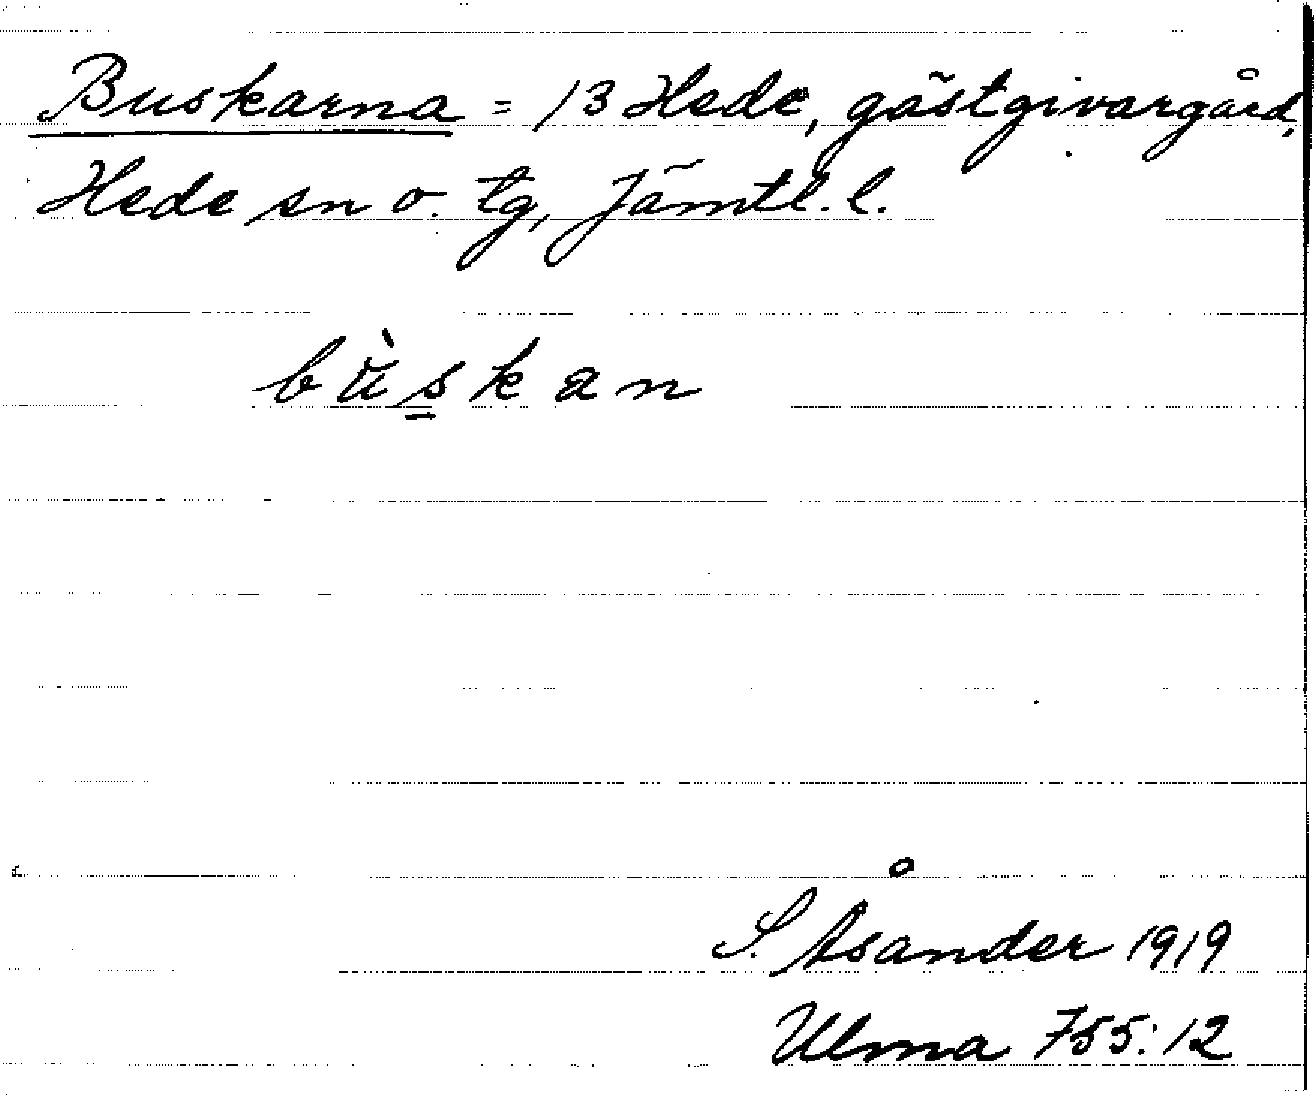 Buskarna = 13 Hede, gästgivargård,
Hede sn o. tg, Jämtl. l.
bùskan
S. Åsander 1919
Ulma 755:12